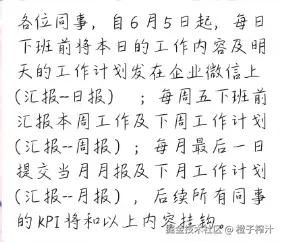 各位同事，自6月5日起，每日
下班前将本日的工作内容及明
天的工作计划发在企业微信上
(汇报--日报)　；每周五下班前
汇报本周工作及下周工作计划
(汇报--周报)；每月最后一日
提交当月月报及下月工作计划
(汇报--月报)，后续所有同事
的KPI将和以上内容挂钩。
掘金技术社区 @ 橙子榨汁